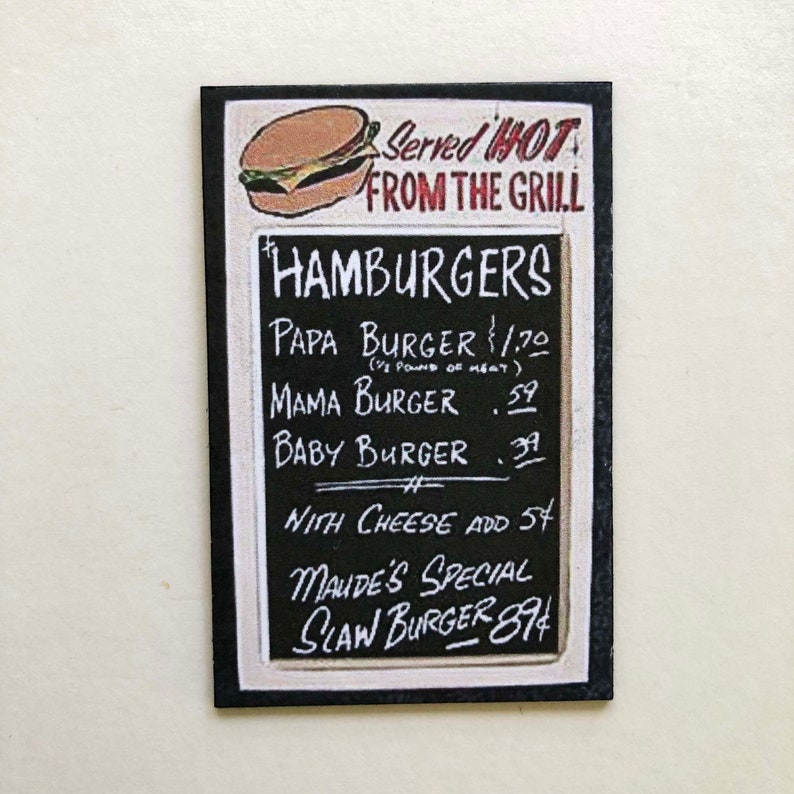 Served HOT
FROM THE GRILL
HAMBURGERS
PAPA BURGER $1.70
(1/2 POUND OF MEAT)
MAMA BURGER .59
BABY BURGER .39
WITH CHEESE ADD 5¢
MAUDE'S SPECIAL
SLAW BURGER - 89¢